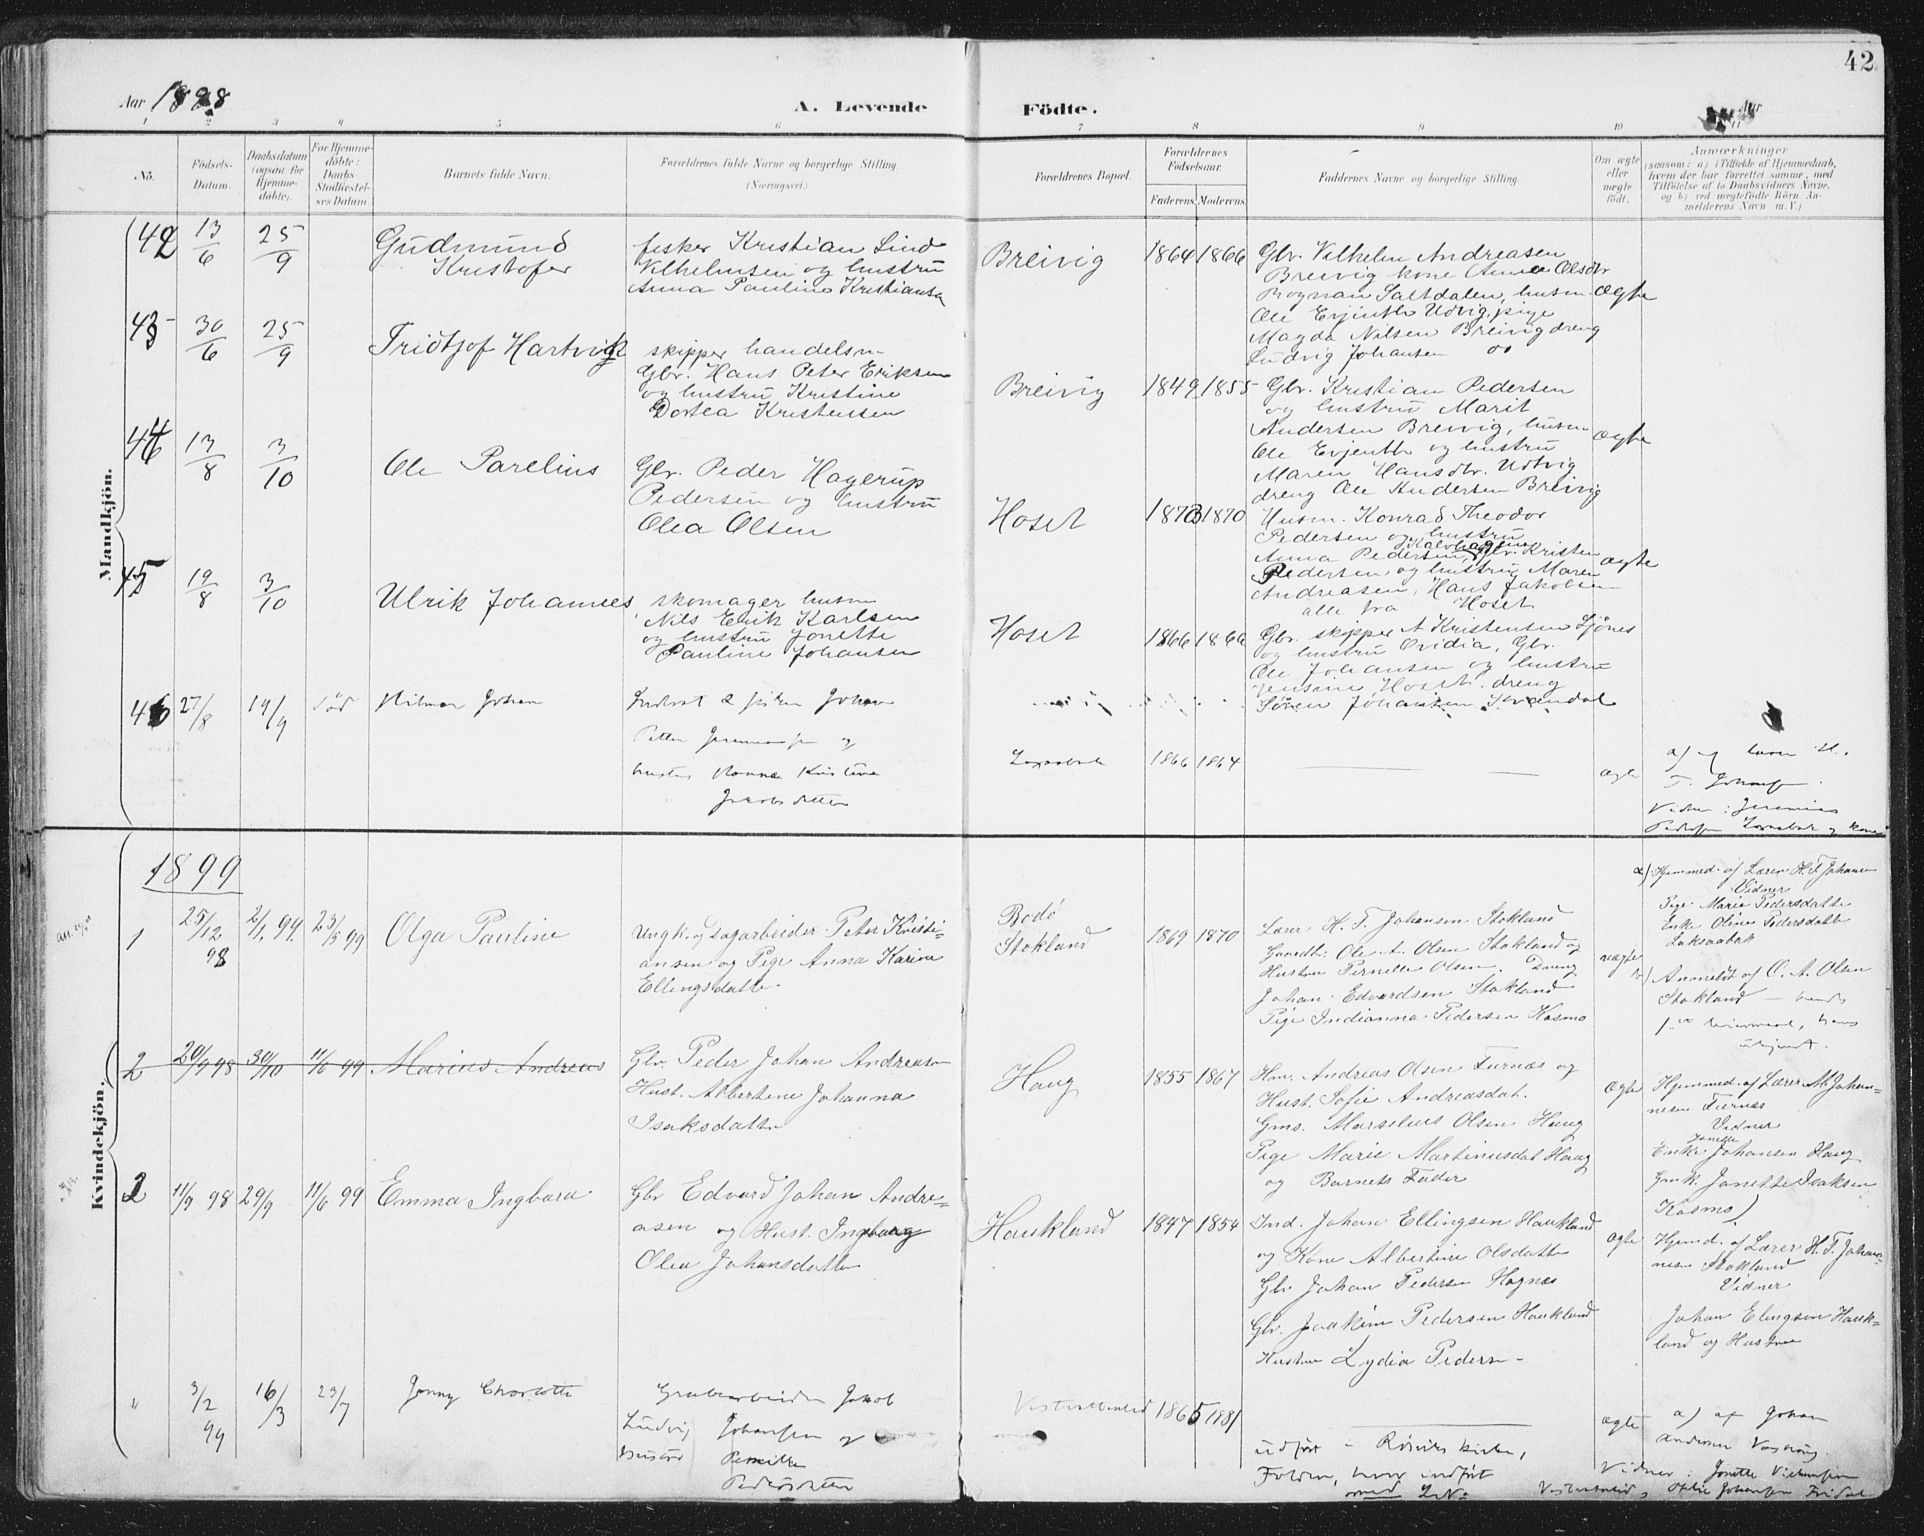 42
Aar 1898
A. Levende
Födte.
Aar
1 2 3 4 5 6 7 8 9 10 11
No.
Födsels-
Datum.
Daabsdatum
(ogsaa for
Hjemme-
döbte).
For Hjemme-
döbte:
Daabs-
Stadfæstel-
ses Datum.
Barnets fulde Navn.
Forældrenes fulde Navne og borgerlige Stilling.
(Næringsvei.)
Forældrenes Bopæl.
Forældrenes
Födselsaar.
Faderens. Moderens.
Faddernes Navne og borgerlige Stilling.
Om ægte
eller
uægte
födt.
Anmærkninger
(saasom: a) i Tilfælde af Hjemmedaab,
hvem der har forrettet samme, med
Tilföielse af to Daabsvidners Navne,
og b) ved uægtefödte Börn An-
melderens Navn m. V.)
Mandkjön.
42 13/6 25/9 Gudmund
Kristofer
fisker Kristian Lind
Vilhelmsen og hustru
Anna Pauline Kristiansen
Breivig 1864 1866
Gbr. Vilhelm Andreasen
Breivig kone Anne Olsdtr
Rognan Saltdalen, husm. ægte
Ole Evjenth Udvig, pige
Magda Nilsen Breivig dreng
Ludvig Johansen
43 30/6 25/9 Fridtjof Hartvig
skipper handelsm
Gbr. Hans Peter Eriksen
og hustru Kristine
Dortea Kristensen
Breivig 1849 1855
Gbr. Kristian Pedersen
og hustru Marit
Andersen Breivig, husm. ægte
Ole Evjenth og hustru
Maren Hansdtr. Udvig
dreng Ole Andersen Breivig
44 13/8 3/10 Ole Parelius
Gbr. Peder Hagerup
Pedersen og hustru
Olea Olsen
Hoset 1873 1870
Husm. Konrad Theodor
Pedersen og hustru
Anna Pedersen, Gbr. Kristen ægte
Pedersen og hustru Maren
Andreasen, Hans Jakobsen
alle fra Hoset
45 19/8 3/10 Ulrik Johannes
skomager husm
Nils Erik Karlsen
og hustru Jonette
Pauline Johansen
Hoset 1866 1866
Gbr. skipper A Kristensen Sjönes
og hustru Ovidia, Gbr.
Ole Johansen og hustru
Jensine Hoset. dreng
Sören Johansen
46 27/8 19/9 död Hilmar Johan
Johan
Petter og
hustru Hanna Kristine
Jakobsdatter
1866 1864 ægte
a) af lærer H.
F. Johansen
Vidner: Jeremias
Pedersen og kone
Kvindekjön.
1899
1 25/12 98 2/1 99. 23/5 99 Olga Pauline
Ungk. og Dagarbeider Peter Kristi-
ansen og Pige Anna Karine
Ellingsdatter
Bodö
Stokland 1869 1870
Lærer H. F. Johansen Stokland
Gaardbr. Ole A. Olsen Stokland og
Hustru Pernille Olsen. Dreng
Johan Edvardsen Stokland
Pige Indianna Pedersen Kosmo
uægte
a) Hjemmed. af Lærer H. F Johansen
Vidner
Pige Marie Pedersdatter
Enke Oline Pedersdatter
Laksaabak
b) Anmeldt af O. A. Olsen
Stokland – hendes
1ste leiermaal, hans
ubekjent.
2 20/9 98 30/10 11/6 99 Marius Andreas
Gbr. Peder Johan Andreasen
Hust. Albertine Johanna
Isaksdatter
Haug 1855 1867
Hm. Andreas Olsen Furnæs og
Hust. Sofie Andreasdat.
Gms. Marselius Olsen Haug
Pige Marie Martinusdat Haug
og Barnets Fader
ægte
Hjemmed. af Lærer M. Johan-
nesen Furnæs
Vidner
Janette
Enke Johansen Haug
Gmk. Janette Isaksen
Kosmo)
2 11/9 98 29/9. 11/6 99 Emma Ingbora
Gbr Edvard Johan Andre-
asen og Hust. Ingborg
Olea Johansdatter
Haukland 1847 1854
Ind. Johan Ellingsen Haukland
og Kone Albertine Olsdatter
Gbr Johan Pedersen Hognæs
Gbr. Joakim Pedersen Haukland
Hustru Lydia Pedersen
ægte
Hjemd. af Lærer H. F. Johan-
nesen Stokland
Vidner
Johan Elingsen Hauk-
land og Hustru
" 3/2 99 16/3 23/7 Jenny Charlotte
Grubearbeider Jakob
Ludvig Johansen og
Hustru Pernille
Pedersdatter
1865 1881
udført i Røsviks kirke,
Folden, hvor indført
med L.No
ægte
a) af Johan
Andersen
Vidner: Jonette